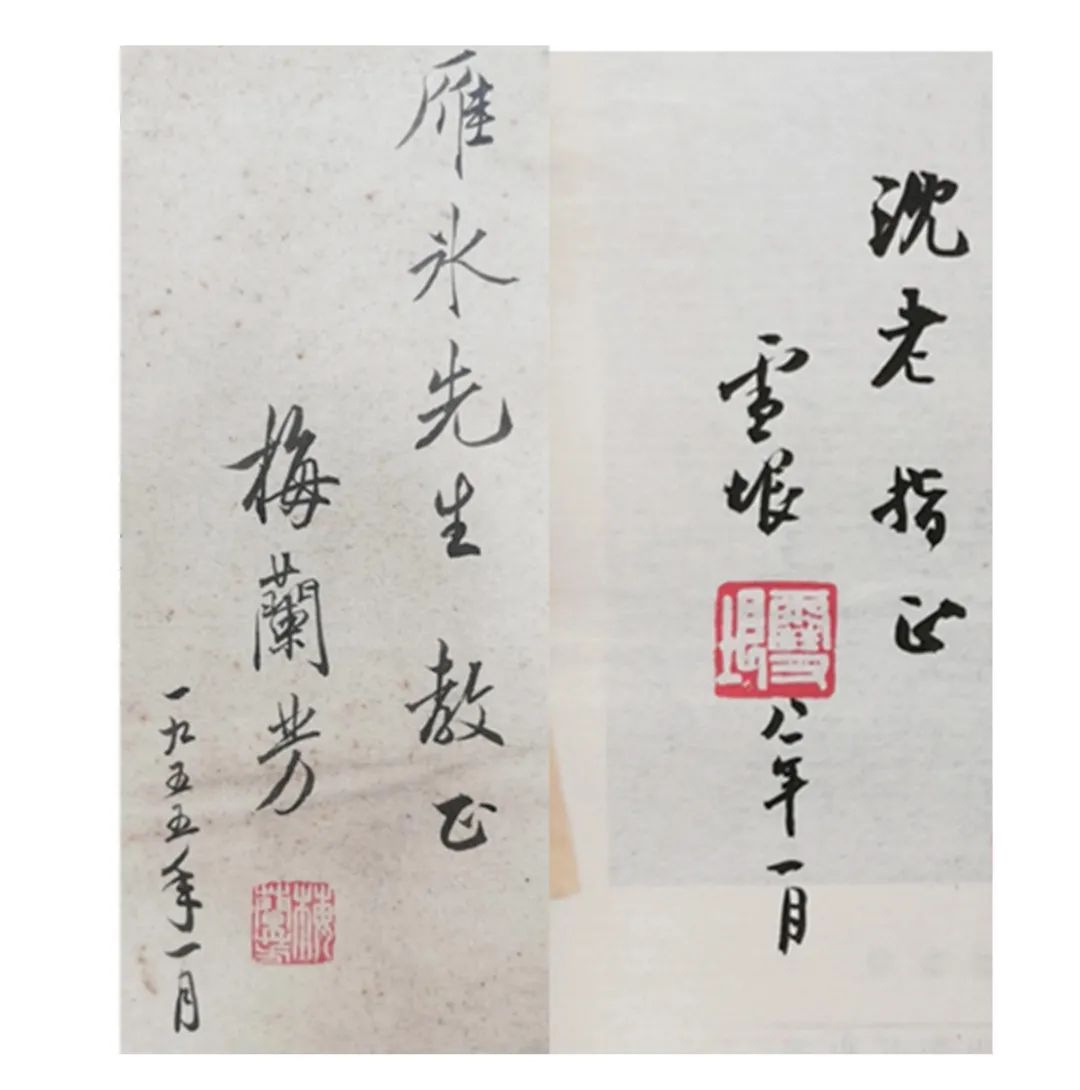 雁冰先生教正
梅蘭芳
一九五五年一月
梅蘭芳
沈老指正
雪垠
雪垠
八一年一月